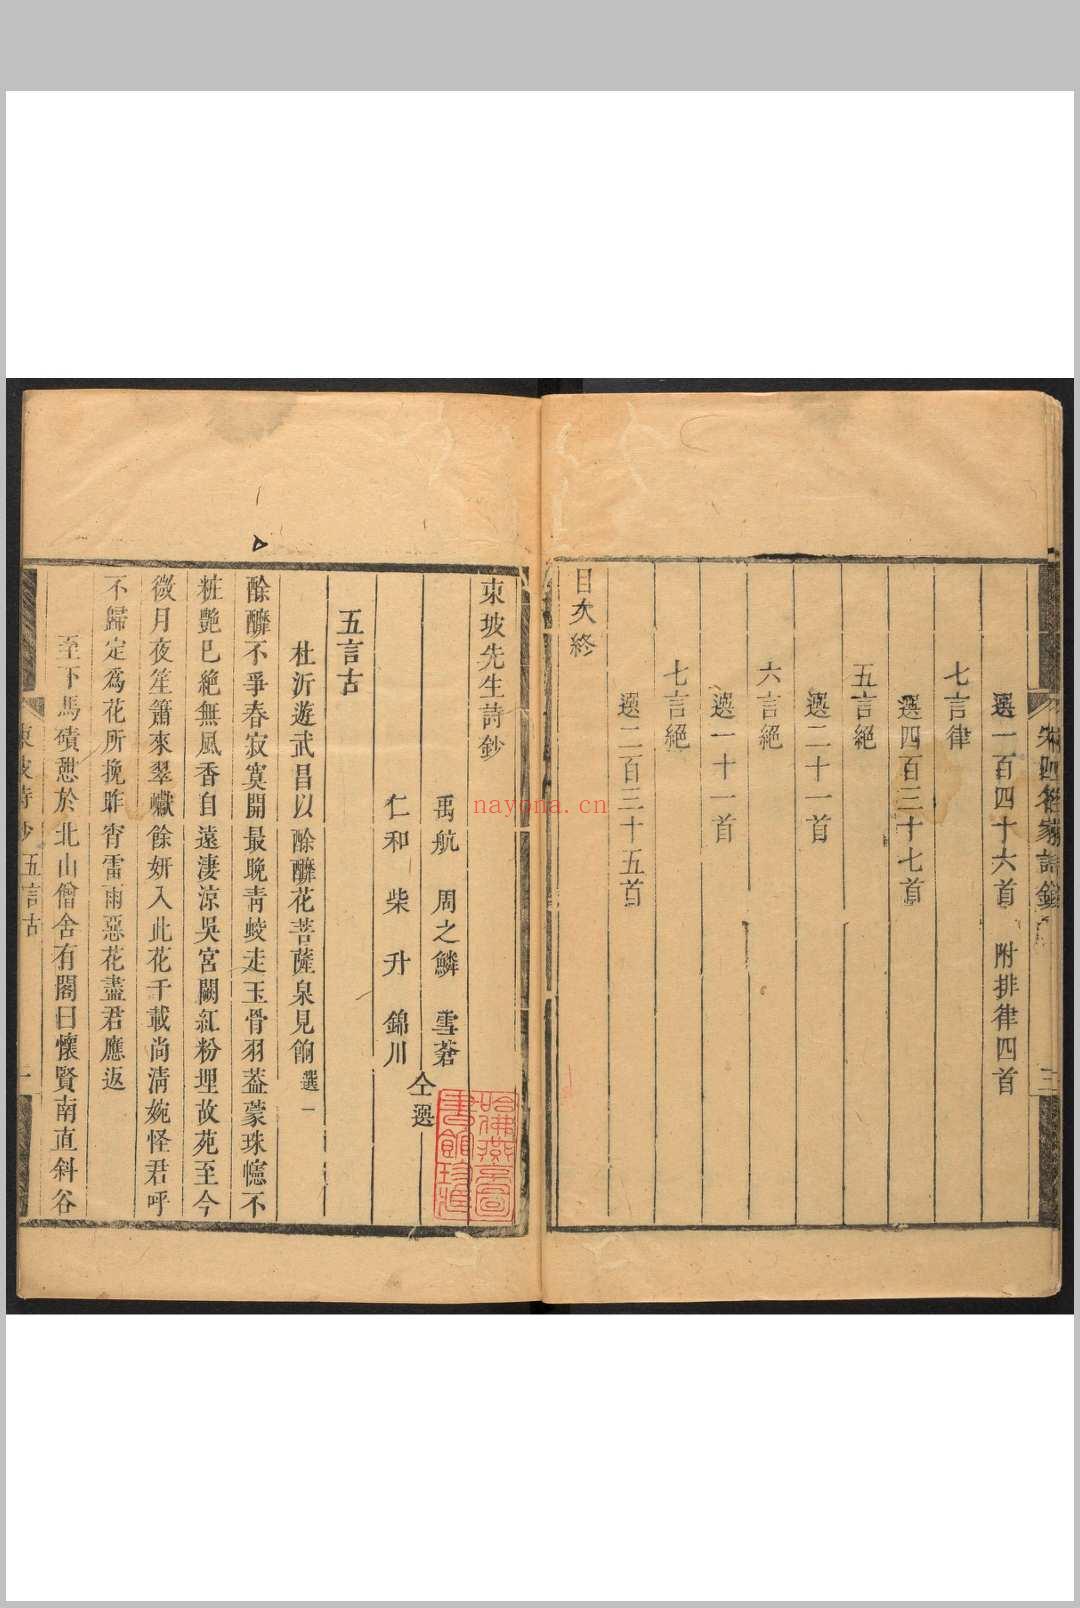 宋四名家詩鈔
三
選一百四十六首 附排律四首
七言律
選四百三十七首
五言絕
選二十一首
六言絕
選一十一首
七言絕
選二百三十五首
目次終
東坡先生詩鈔
禹航 周之鱗 雪蒼
仁和 柴 升 錦川
仝選
五言古
杜沂遊武昌以酴醾花菩薩泉見餉 選一
酴醾不爭春寂寞開最晚青蛟走玉骨羽葢蒙珠幰不
粧艷已絕無風香自遠淒涼吳宮闕紅粉埋故苑至今
微月夜笙簫來翠巘餘妍入此花千載尚清婉怪君呼
不歸定為花所挽昨宵雷雨惡花盡君應返
至下馬磧憇於北山僧舍有閣曰懷賢南直斜谷
東坡詩鈔 五言古
一
哈佛燕京圖書館珍藏
nayona.cn